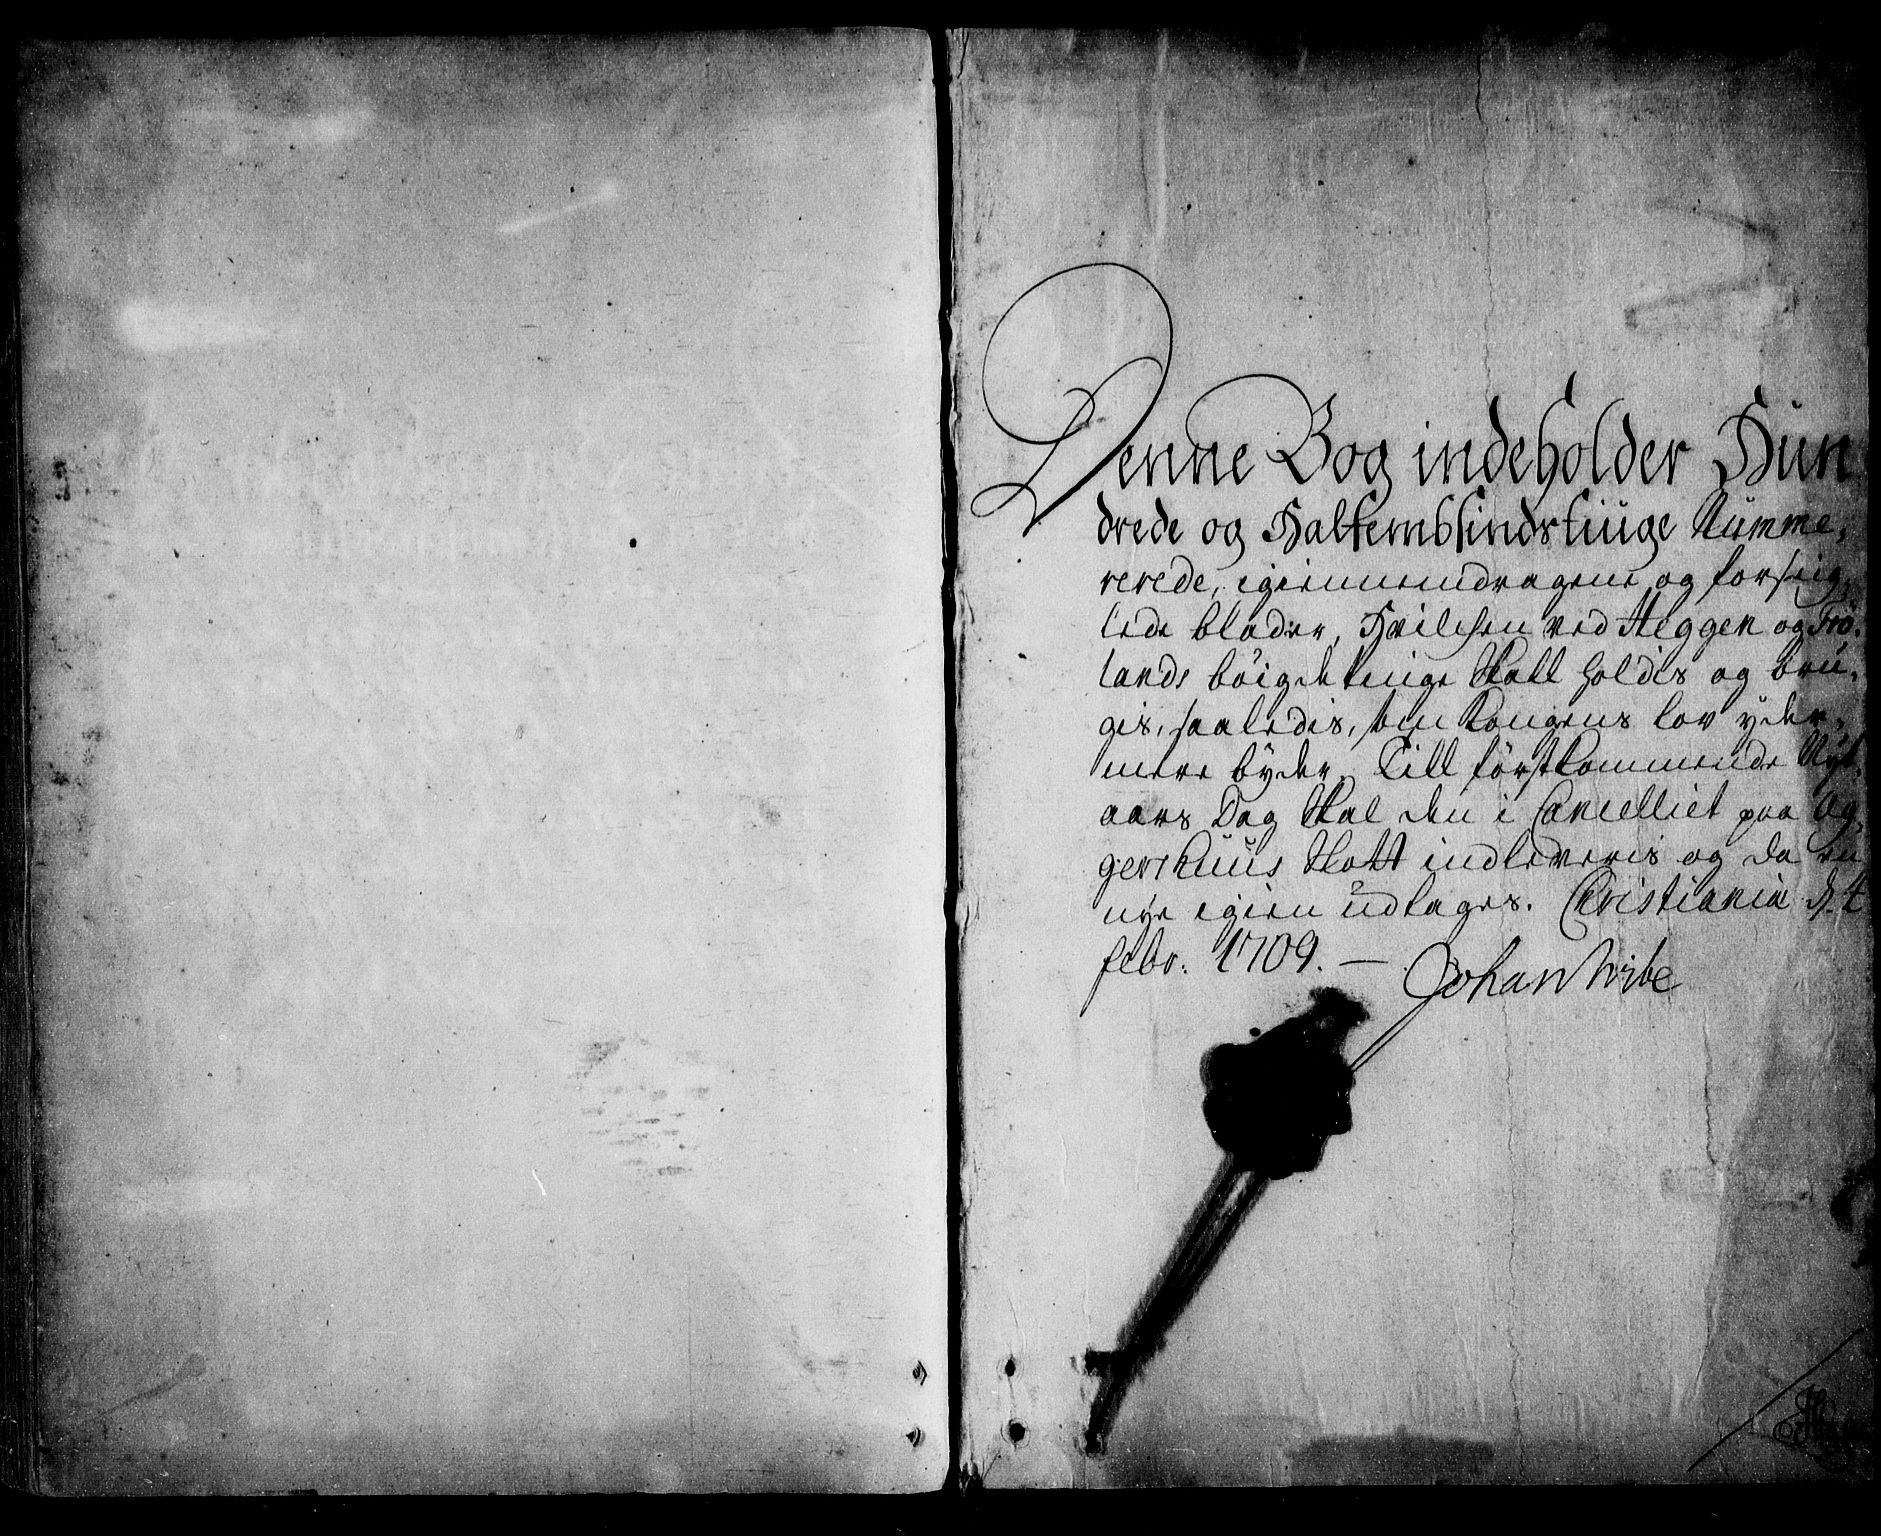 Denne Bog indeholder Hun
drede og Halfembsindstiuge Numme,
rerede, igiennemdragene og forseig,
lede blader, Hvilchen ved Heggen og Frö,
lands böigdetinge skall holdis og bru,
gis, saaledis, som Kongens lov yder,
mere byder. Till förstkommende Nyt,
aars Dag skal den i Cancelliet paa Ag,
gershuus slott indleveris og da en
nye igien udtages. Christiania d. 4
febr. 1709. — Johan Wibe